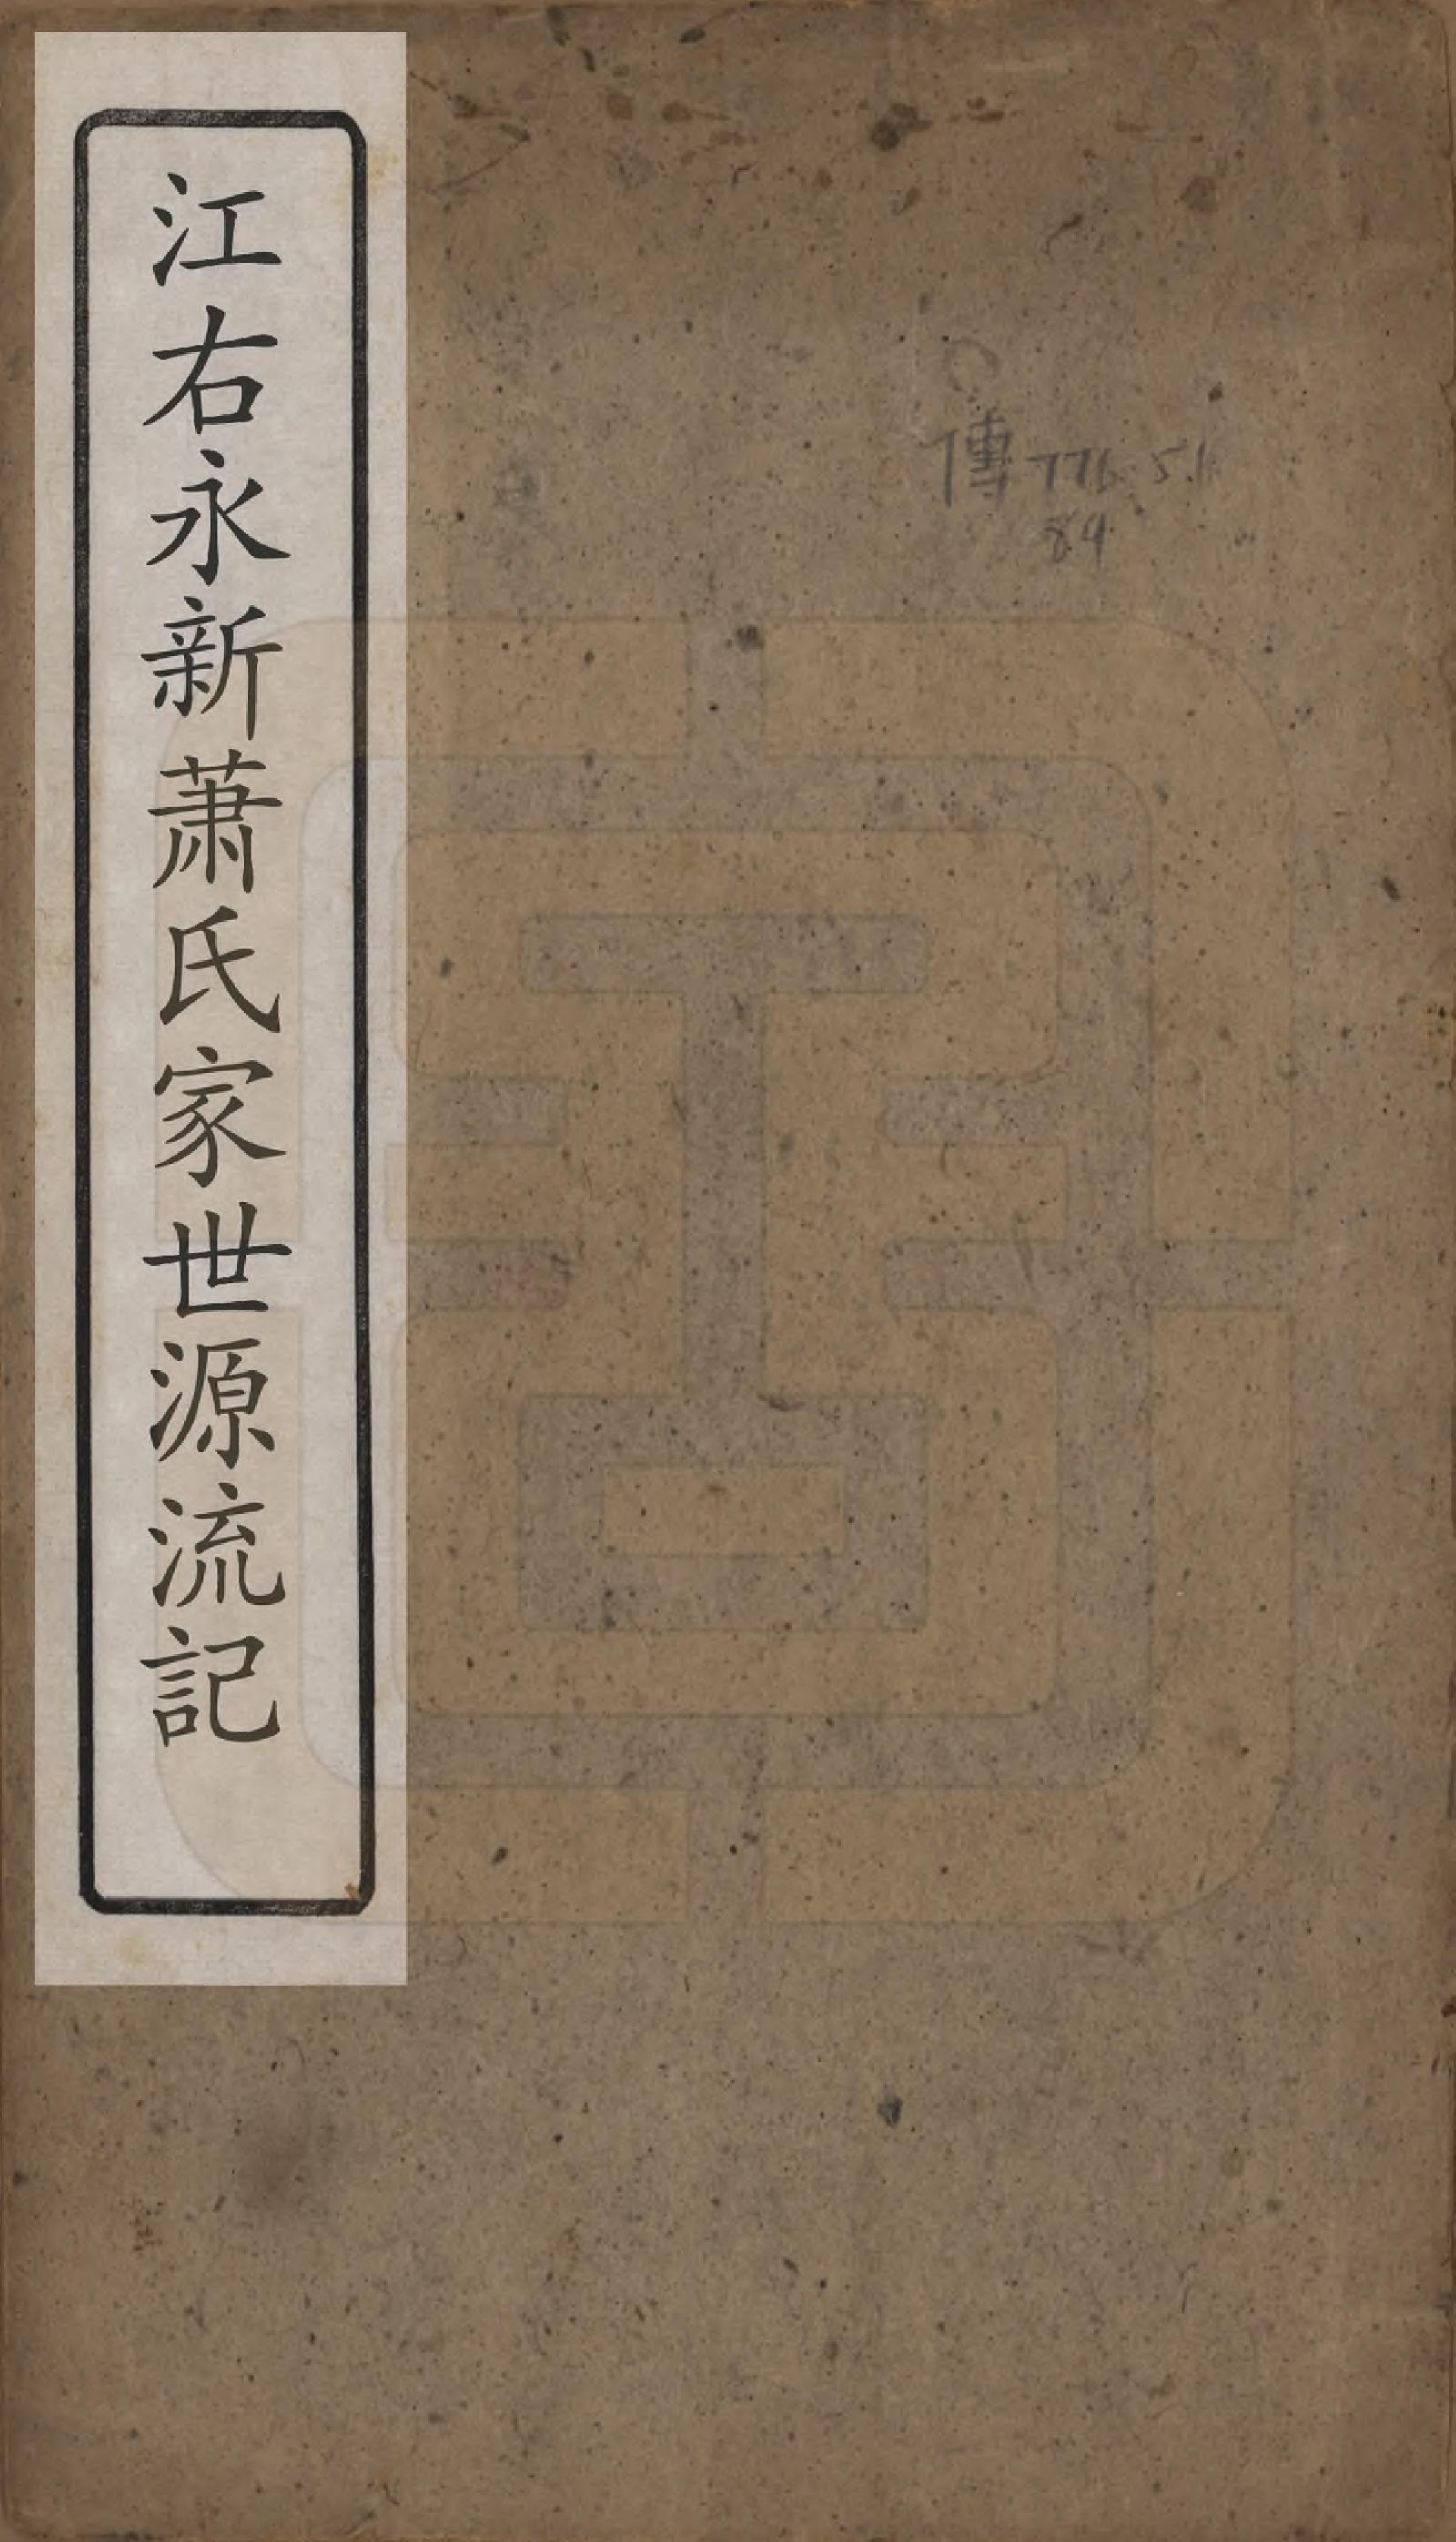 江右永新萧氏家世源流記
傳 776.51
89